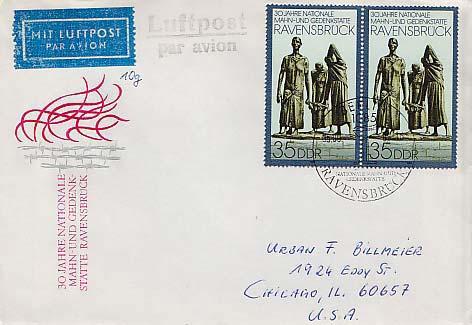 MIT LUFTPOST
PAR AVION
Luftpost
par avion
10g
30 JAHRE NATIONALE
MAHN- UND GEDENKSTÄTTE
RAVENSBRÜCK
35 DDR
30 JAHRE NATIONALE
MAHN- UND GEDENKSTÄTTE
RAVENSBRÜCK
35 DDR
NATIONALE MAHN- UND
GEDENKSTÄTTE
RAVENSBRÜCK
30 JAHRE NATIONALE
MAHN- UND GEDENK-
STÄTTE RAVENSBRÜCK
URBAN F. BILLMEIER
1924 EDDY ST.
CHICAGO, IL 60657
U.S.A.